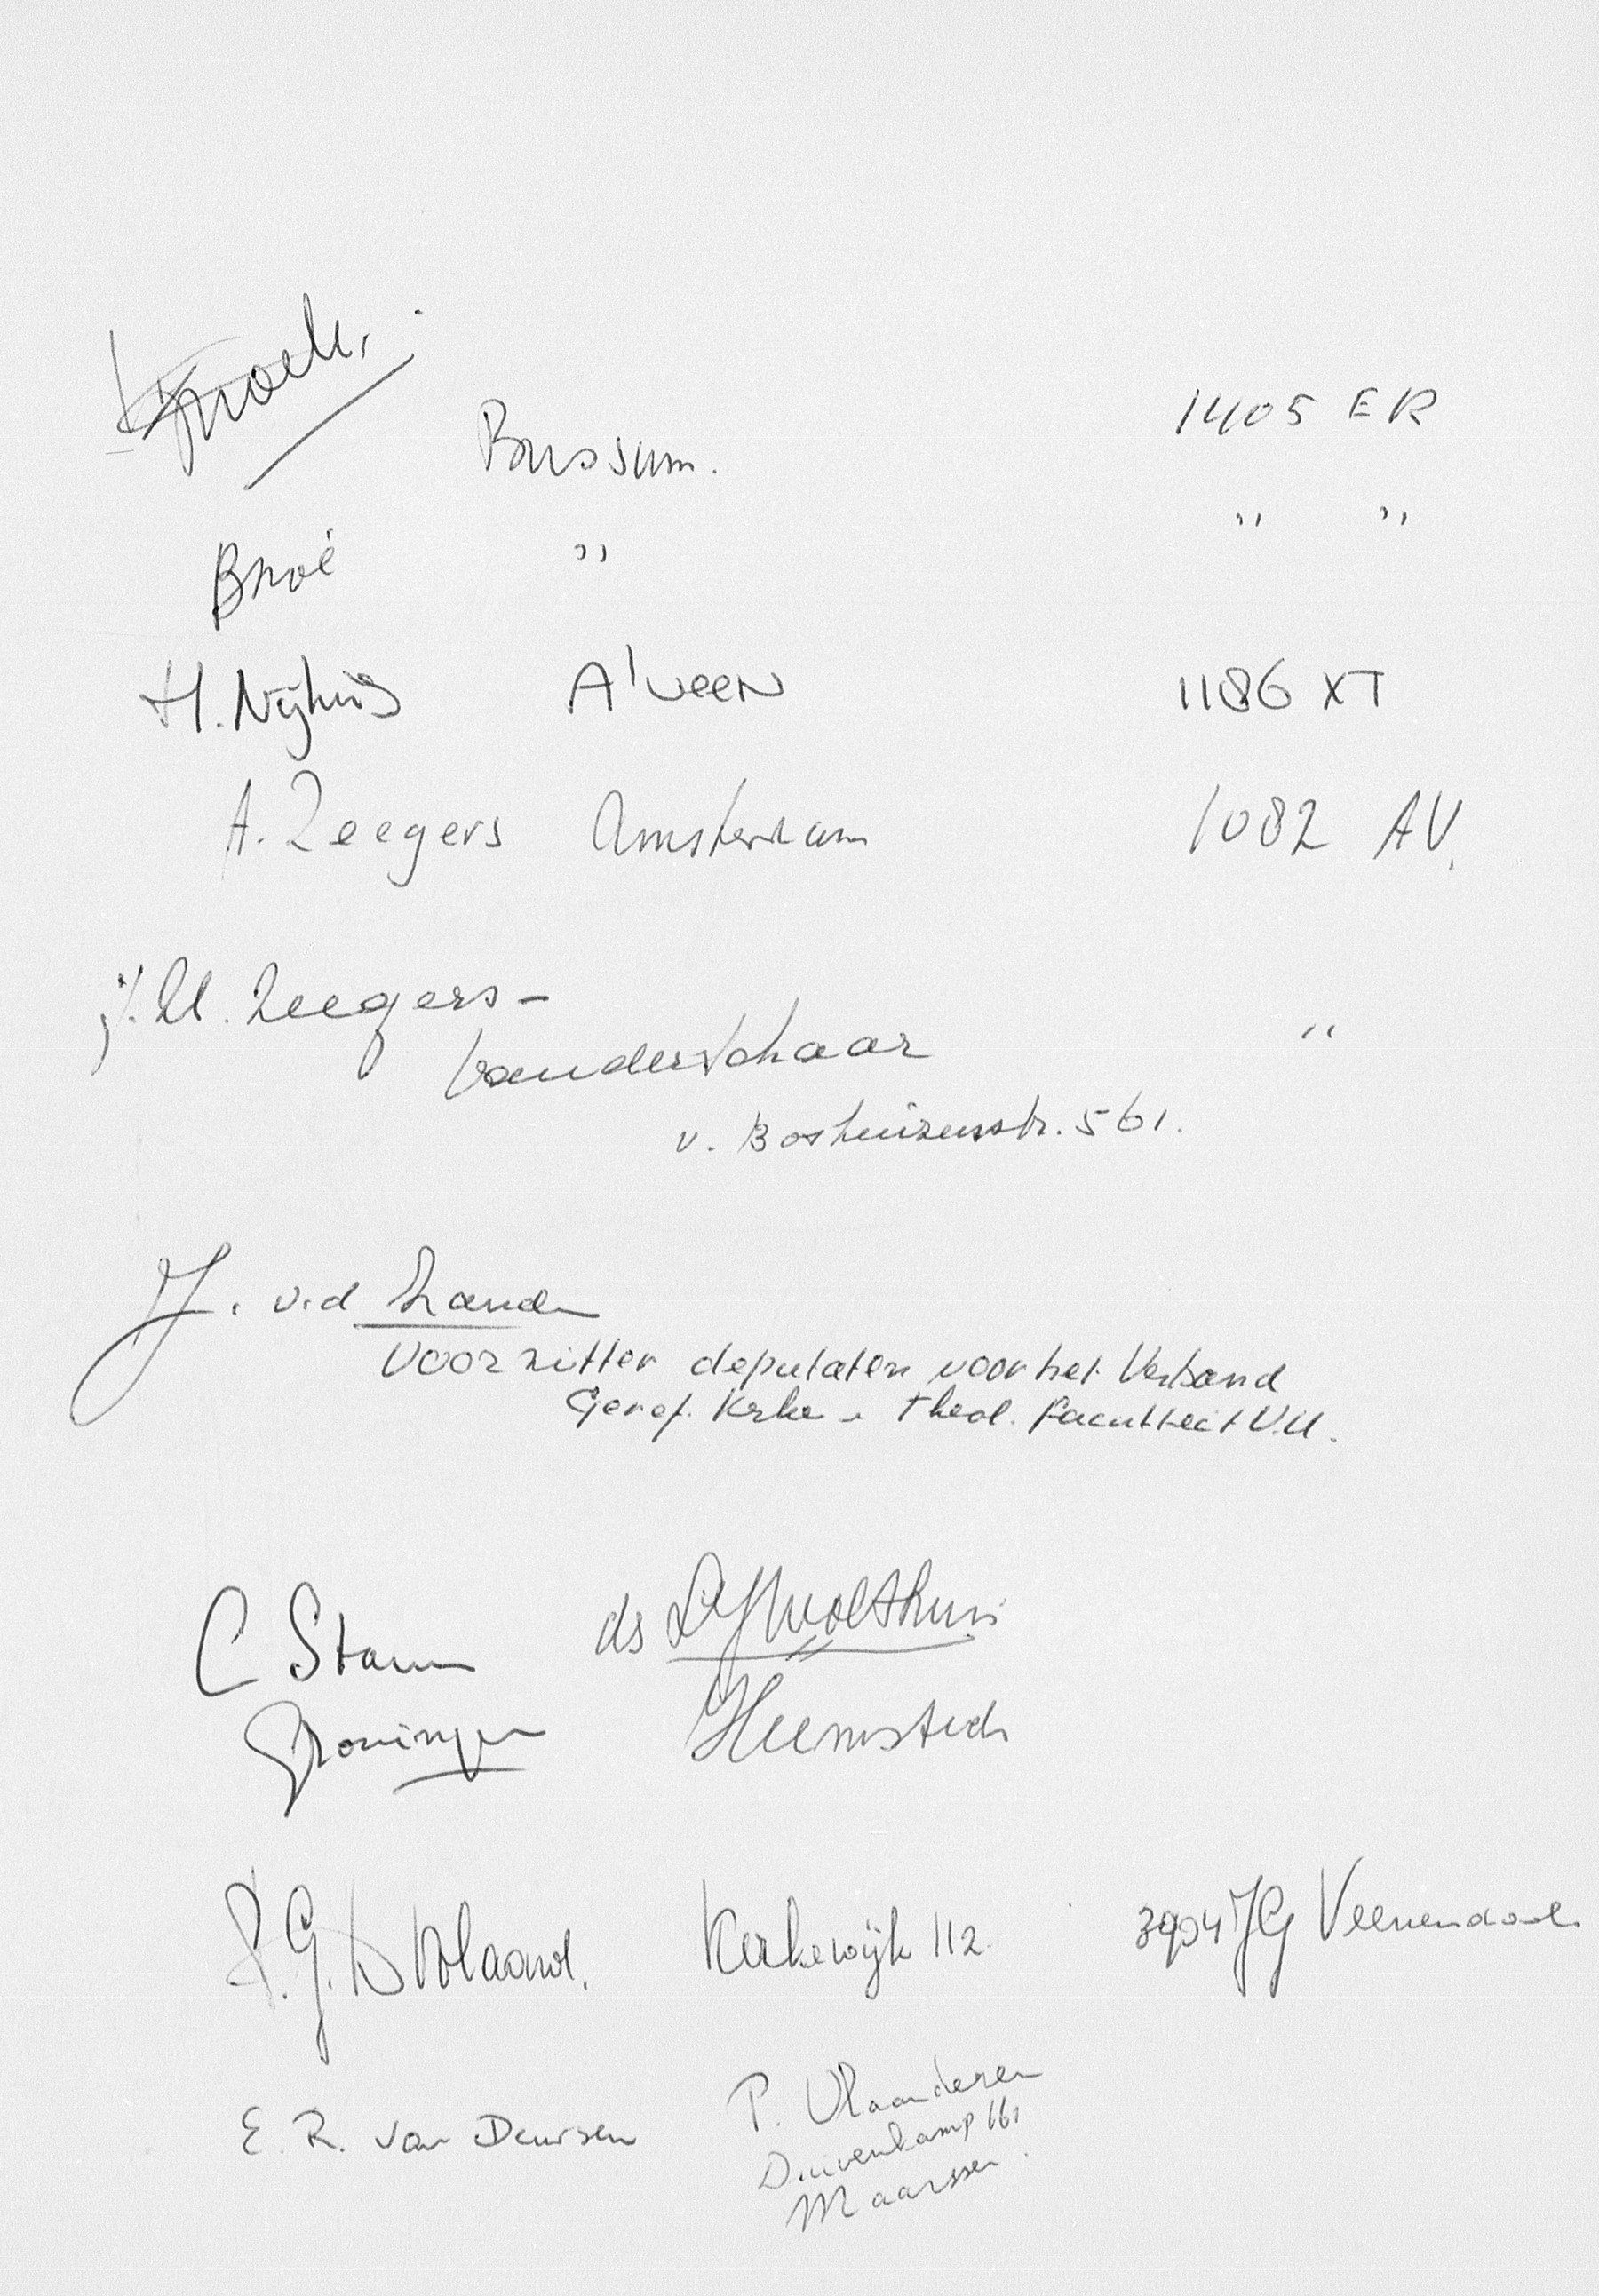 Bussum. 1405 ER
" " "
H. Nijhuis A'veen 1186 XT
A. Zeegers Amsterdam 1082 AV.
J. M. Zeegers-
vanderschaar "
v. Boshuizenstr. 561.
J. v.d. Zanden
voorzitter deputaten voor het Verband
Geref. Kerke - Theol. Faculteit V.U.
C Stam ds Wolthuis
Groningen Heemstede
Kerkewijk 112. 3904 JG Veenendaal
E. R. van Deursen P. Vlaanderen
Duivenkamp 661
Maarssen.